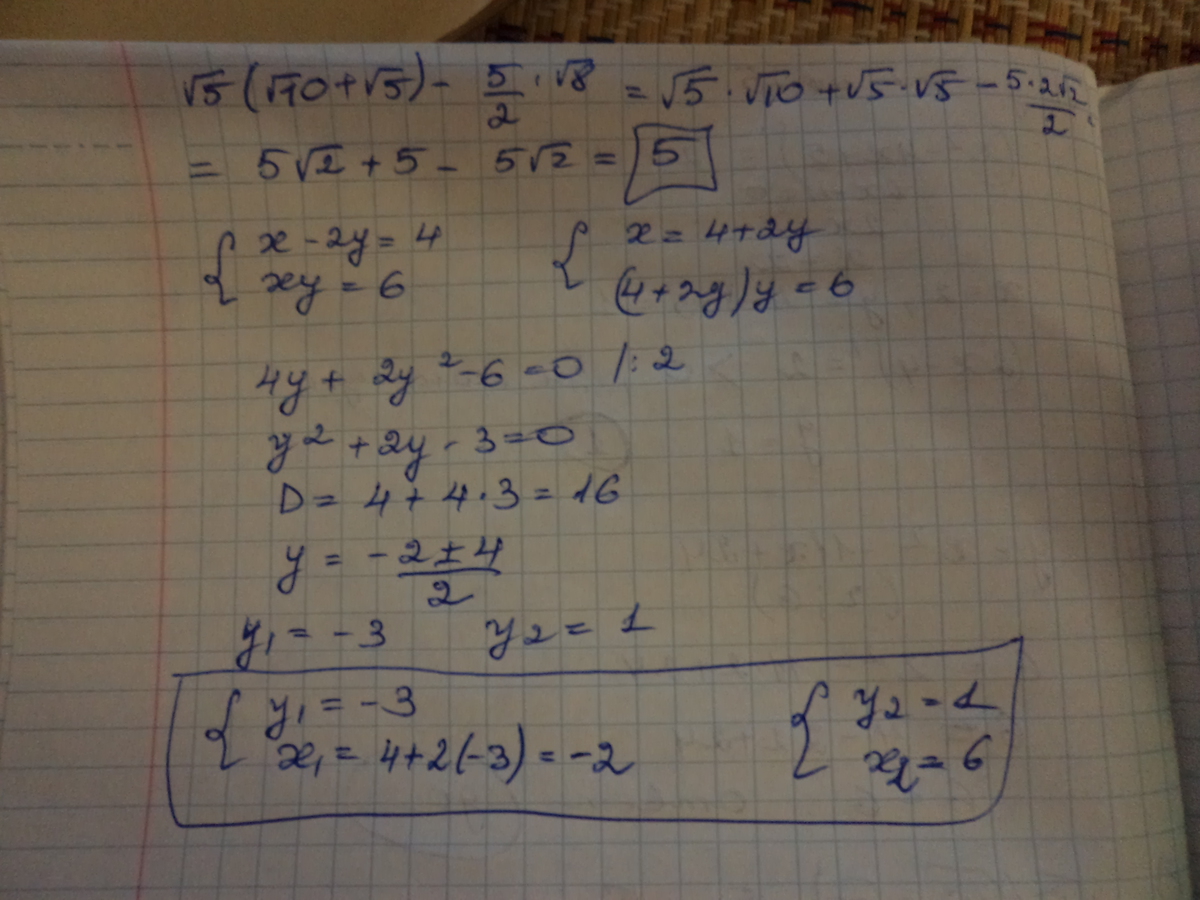 √5 (√10 + √5) - 5/2 · √8 = √5 · √10 + √5 · √5 - 5·2√2/2 =
= 5√2 + 5 - 5√2 = 5
{ x - 2y = 4 { x = 4 + 2y
xy = 6 (4 + 2y) y = 6
4y + 2y² - 6 = 0 /: 2
y² + 2y - 3 = 0
D = 4 + 4 · 3 = 16
y = -2 ± 4 / 2
y₁ = -3 y₂ = 1
{ y₁ = -3 { y₂ = 1
x₁ = 4 + 2(-3) = -2 x₂ = 6